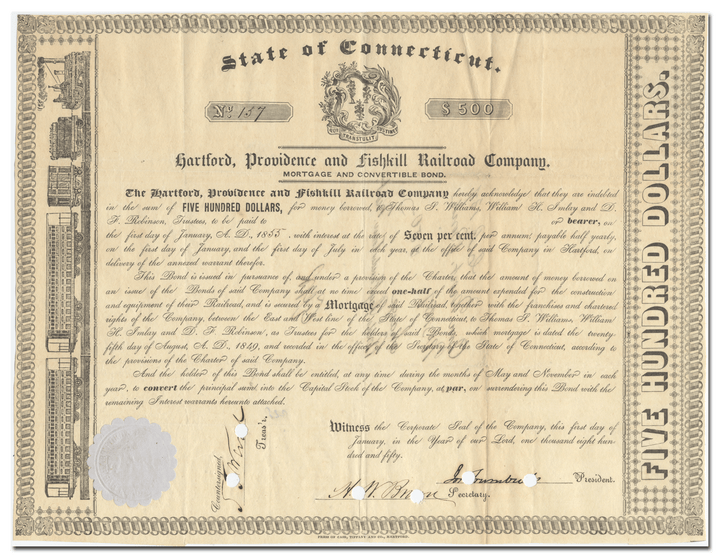 State of Connecticut.
No. 137
$ 500
QUI TRANSTULIT SUSTINET
Hartford, Providence and Fishkill Railroad Company.
MORTGAGE AND CONVERTIBLE BOND.
The Hartford, Providence and Fishkill Railroad Company hereby acknowledge that they are indebted
in the sum of FIVE HUNDRED DOLLARS, for money borrowed, by Thomas S. Williams, William H. Imlay and D.
F. Robinson, Trustees, to be paid to or bearer, on
the first day of January, A. D. 1855, with interest at the rate of Seven per cent. per annum, payable half yearly,
on the first day of January, and the first day of July in each year, at the office of said Company in Hartford, on
delivery of the annexed warrant therefor.
This Bond is issued in pursuance of, and under a provision of the Charter, that the amount of money borrowed on
an issue of the Bonds of said Company shall at no time exceed one-half of the amount expended for the construction
and equipment of their Railroad, and is secured by a Mortgage of said Railroad, together with the franchise and chartered
rights of the Company, between the East and West line of the State of Connecticut, to Thomas S. Williams, William
H. Imlay and D. F. Robinson, as Trustees for the holders of said Bonds, which mortgage is dated the twenty-
fifth day of August, A. D. 1849, and recorded in the office of the Secretary of the State of Connecticut, according to
the provisions of the Charter of said Company.
And the holder of this Bond shall be entitled, at any time during the months of May and November in each
year, to convert the principal sum into the Capital Stock of the Company, at par, on surrendering this Bond with the
remaining Interest warrants thereto attached.
Witness the Corporate Seal of the Company, this first day of
January, in the Year of our Lord, one thousand eight hun-
dred and fifty.
President.
Secretary.
Countersigned,
Treas'r.
FIVE HUNDRED DOLLARS.